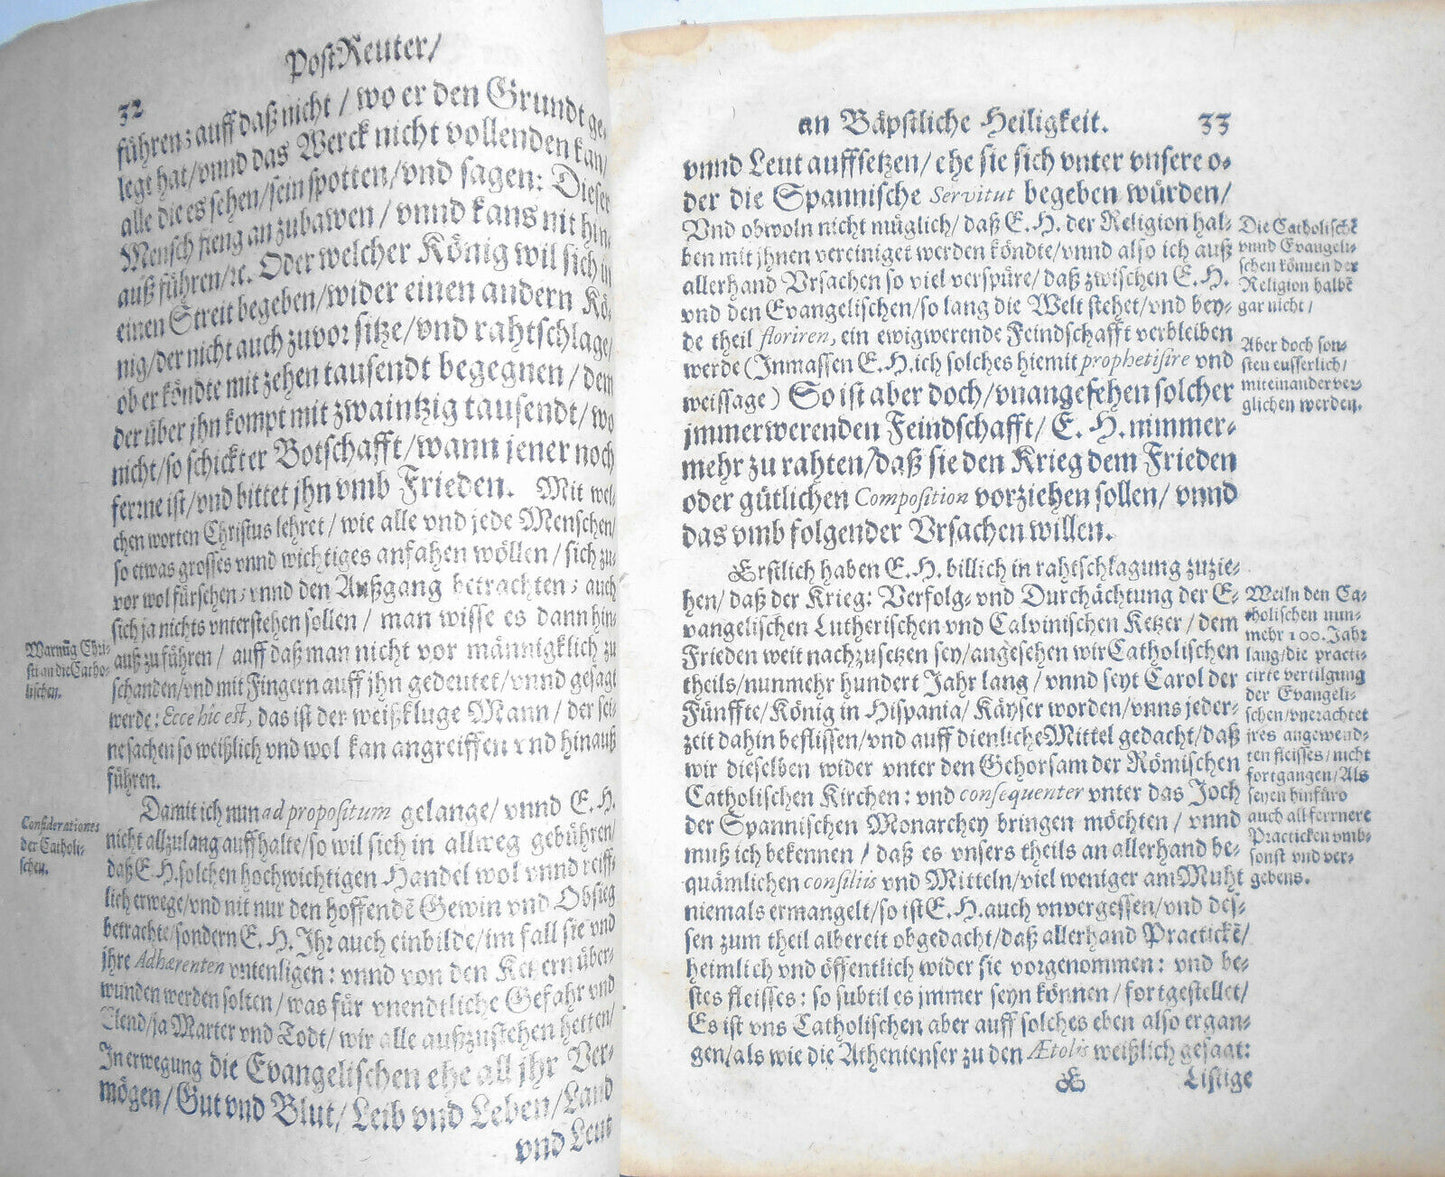 PostReuter/
32
führen; auff daß nicht / wo er den Grundt ge-
legt hat/vnnd das Werck nicht vollenden kan/
alle die es sehen/sein spotten/vnd sagen: Dieser
Mensch fieng an zubawen / vnnd kans nit hin-
auß führen/ꝛc. Oder welcher König wil sich in
einen Streit begeben/wider einen andern Kö-
nig/der nicht auch zuvor sitze/vnd rahtschlage/
ob er köndte mit zehen tausendt begegnen / dem
der über jhn kompt mit zwaintzig tausendt/ wo
nicht/so schickter Botschafft/wann jener noch
ferrne ist/vnd bittet jhn vmb Frieden. Mit wel-
chen worten Christus lehret / wie alle vnd jede Menschen/
so etwas grosses vnnd wichtiges anfahen wöllen / sich zu-
vor wol fürsehen; vnnd den Außgang betrachten; auch
sich ja nichts vnterstehen sollen / man wisse es dann hin-
auß zu führen / auff daß man nicht vor männigklich zu
schanden/vnd mit Fingern auff jhn gedeutet/vnnd gesagt
werde: Ecce hic est, das ist der weißkluge Mann / der sei-
ne sachen so weißlich vnd wol kan angreiffen vnd hinauß
führen.
Warnũg Chri-
sti an die Catho-
lischen.
Damit ich nun ad propositum gelange/ vnnd E. H.
nicht allzulang auffhalte/so wil sich in allweg gebühren/
daß E. H. solchen hochwichtigen Handel wol vnnd reiff-
lich erwege/vnd nit nur den hoffendē Gewin vnd Obsieg
betrachte/sondern E. H. Ihr auch einbilde/im fall sie vnd
jhre Adhærenten vntenligen: vnnd von den Ketzern über-
wunden werden solten/was für vnendtliche Gefahr vnd
Elend/ja Marter vnd Todt/ wir alle außzustehen hetten/
In erwegung die Evangelischen ehe all jhr Ver-
mögen/Gut vnd Blut/Leib vnd Leben/Land
vnd Leut
Considerationes
der Catholi-
schen.
an Bäpstliche Heiligkeit. 33
vnnd Leut auffsetzen/ ehe sie sich vnter vnsere o-
der die Spannische Servitut begeben würden/
Vnd obwoln nicht müglich/ daß E. H. der Religion hal-
ben mit jhnen vereiniget werden köndte/vnnd also ich auß
allerhand Vrsachen so viel verspüre/ daß zwischen E. H.
vnd den Evangelischen/so lang die Welt stehet/vnd bey-
de theil floriren, ein ewigwerende Feindschafft verbleiben
werde (Inmassen E. H. ich solches hiemit prophetisire vnd
weissage) So ist aber doch/vnangesehen solcher
jmmerwerenden Feindschafft/ E. H. nimmer-
mehr zu rahten/daß sie den Krieg dem Frieden
oder gütlichen Composition vorziehen sollen/ vnnd
das vmb folgender Vrsachen willen.
Die Catholischē
vnnd Evangeli-
schen können der
Religion halbē
gar nicht/
Aber doch son-
sten eusserlich/
miteinander ver-
glichen werden.
Erstlich haben E. H. billich in rahtschlagung zuzie-
hen/ daß der Krieg: Verfolg- vnd Durchächtung der E-
vangelischen Lutherischen vnd Calvinischen Ketzer/ dem
Frieden weit nachzusetzen sey/angesehen wir Catholischen
theils/nunmehr hundert Jahr lang / vnnd seyt Carol der
Fünffte/König in Hispania/ Käyser worden/vnns jeder-
zeit dahin beflissen/vnd auff dienliche Mittel gedacht/daß
wir dieselben wider vnter den Gehorsam der Römischen
Catholischen Kirchen: vnd consequenter vnter das Joch
der Spannischen Monarchey bringen möchten/ vnnd
muß ich bekennen / daß es vnsers theils an allerhand be-
quämlichen consiliis vnd Mitteln/viel weniger am Muht
niemals ermangelt/so ist E. H. auch vnvergessen/vnd des-
sen zum theil albereit obgedacht/daß allerhand Practickē/
heimlich vnd öffentlich wider sie vorgenommen: vnd be-
stes fleisses: so subtil es jmmer seyn können / fortgestellet/
Es ist vns Catholischen aber auff solches eben also ergan-
gen/als wie die Athentenser zu den Ætolis weißlich gesagt:
E Listige
Weiln den Ca-
tholischen nun-
mehr 100. Jahr
lang/die practi-
cirte vertilgung
der Evangeli-
schen/vnerachtet
jres angewend-
ten fleisses/nicht
fortgangen/Als
seyen hinfüro
auch all fernere
Practicken vmb-
sonst vnd ver-
gebens.